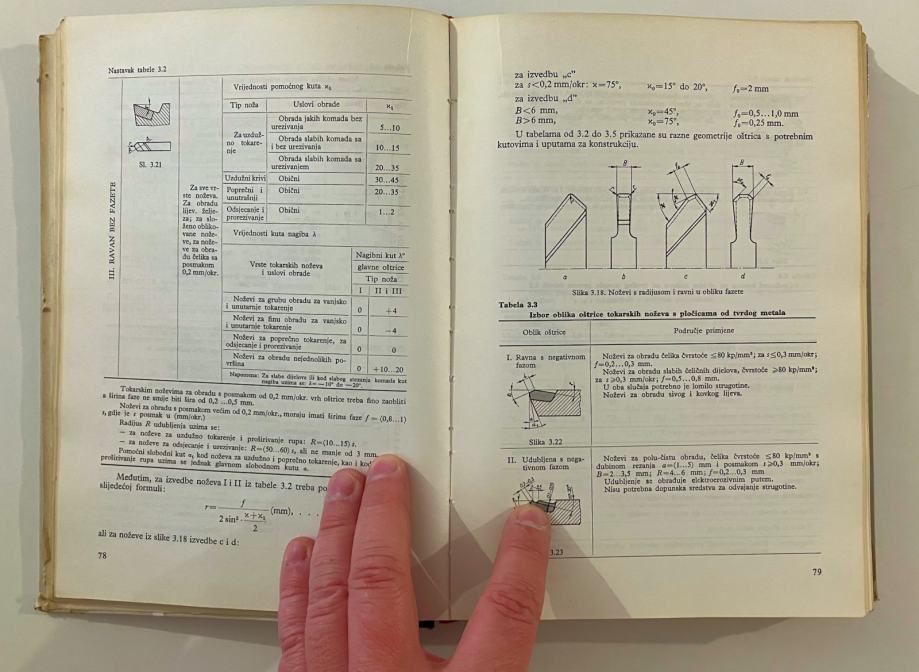 Nastavak tabele 3.2
Sl. 3.21
III. RAVAN BEZ FAZETE
Za sve vr-
ste noževa.
Za obradu
lijev. želje-
za; za slo-
ženo obliko-
vane nože-
ve, za nože-
ve za obra-
du čelika sa
posmakom
0,2 mm/okr.
Vrijednosti pomoćnog kuta ϰ₁
Tip noža Uslovi obrade ϰ₁
Za uzduž-
no tokare-
nje
Obrada jakih komada bez
urezivanja 5...10
Obrada slabih komada sa
i bez urezivanja 10...15
Obrada slabih komada sa
urezivanjem 20...35
Uzdužni krivi Obični 30...45
Poprečni i Obični 20...35
unutrašnji
Odsjecanje i Obični 1...2
prorezivanje
Vrijednosti kuta nagiba λ
Vrste tokarskih noževa
i uslovi obrade
Nagibni kut λ°
glavne oštrice
Tip noža
I II i III
Noževi za grubu obradu za vanjsko
i unutarnje tokarenje 0 +4
Noževi za finu obradu za vanjsko
i unutarnje tokarenje 0 −4
Noževi za poprečno tokarenje, za
odsjecanje i prorezivanje 0 0
Noževi za obradu nejednolikih po-
vršina 0 +10...20
Napomena: Za slabe dijelove ili kod slabog stezanja komada kut
nagiba uzima se: λ=−10° do −20°.
Tokarskim noževima za obradu s posmakom od 0,2 mm/okr. vrh oštrice treba fino zaobliti
a širina faze ne smije biti šira od 0,2 ...0,5 mm.
Noževi za obradu s posmakom većim od 0,2 mm/okr., moraju imati širinu faze f = (0,8...1)
s, gdje je s posmak u (mm/okr.)
Radijus R udubljenja uzima se:
— za noževe za uzdužno tokarenje i proširivanje rupa: R=(10...15) s,
— za noževe za odsjecanje i urezivanje: R=(50...60) s, ali ne manje od 3 mm.
Pomoćni slobodni kut α₁ kod noževa za uzdužno i poprečno tokarenje, kao i kod
proširivanje rupa uzima se jednak glavnom slobodnom kutu α.
Međutim, za izvedbe noževa I i II iz tabele 3.2 treba
slijedećoj formuli:
r = f / (2 sin² · (ϰ+ϰ₁)/2) (mm), . . . .
ali za noževe iz slike 3.18 izvedbe c i d:
78
za izvedbu „c”
za s<0,2 mm/okr: ϰ=75°, ϰ₀=15° do 20°, f₀=2 mm
za izvedbu „d”
B<6 mm, ϰ₀=45°, f₀=0,5...1,0 mm
B>6 mm, ϰ₀=75°, f₀=0,25 mm.
U tabelama od 3.2 do 3.5 prikazane su razne geometrije oštrica s potrebnim
kutovima i uputama za konstrukciju.
B f₀ B
a b c d
Slika 3.18. Noževi s radijusom i ravni u obliku fazete
Tabela 3.3
Izbor oblika oštrice tokarskih noževa s pločicama od tvrdog metala
Oblik oštrice Područje primjene
I. Ravna s negativnom
fazom
Slika 3.22
Noževi za obradu čelika čvrstoće ≤80 kp/mm²; za s≤0,3 mm/okr;
f=0,2...0,3 mm.
Noževi za obradu slabih čeličnih dijelova, čvrstoće ≥80 kp/mm²;
za s≥0,3 mm/okr; f=0,5...0,8 mm.
U oba slučaja potrebno je lomilo strugotine.
Noževi za obradu sivog i kovkog lijeva.
II. Udubljena s nega-
tivnom fazom
3.23
Noževi za polu-čistu obradu, čelika čvrstoće ≤80 kp/mm² s
dubinom rezanja a=(1...5) mm i posmakom s≥0,3 mm/okr;
B=2...3,5 mm; R=4...6 mm; f=0,2...0,3 mm
Udubljenje se obrađuje elektroerozivnim putem.
Nisu potrebna dopunska sredstva za odvajanje strugotine.
79